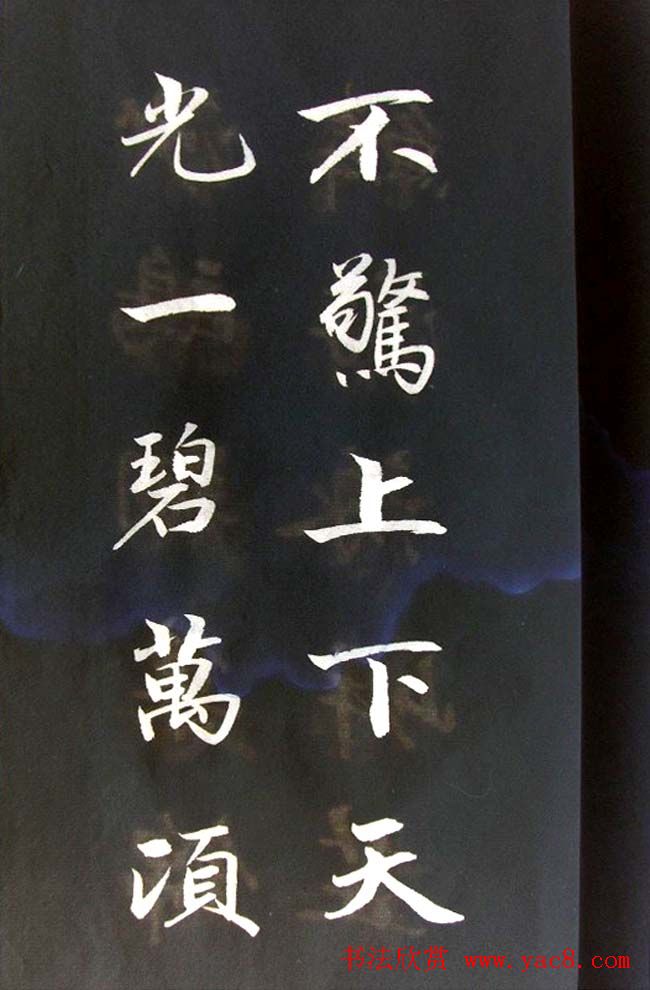 不驚上下天
光一碧萬頃
书法欣赏 www.yac8.com